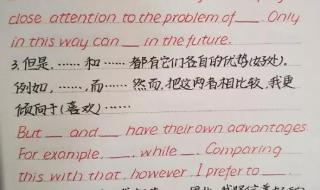 close attention to the problem of ___. Only
in this way can __ in the future.
3.但是,……和……都有它们各自的优势(好处).
例如,……,而…… 然而,把这两者相比较,我更
倾向于(喜欢)……
But __ and __ have their own advantages
For example, __, while __. Comparing
this with that, however, I prefer to __.